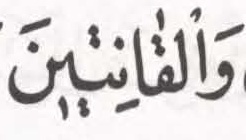 وَٱلْقَانِتِينَ